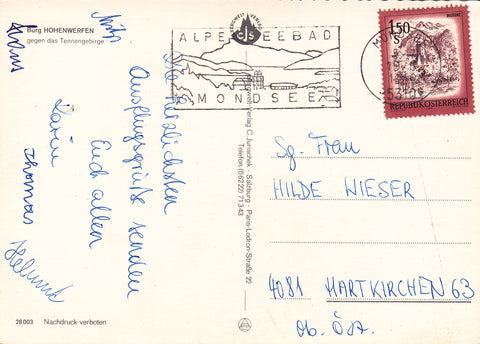 Burg HOHENWERFEN
gegen das Tennengebirge
Die herzlichsten
Ausflugsgrüße senden
Euch allen
Karin
Thomas
Helmut
28 003 Nachdruck verboten
C. Jurischek, Salzburg - Paris-Lodron-Straße 22
Telefon (06222) 71343
CJS
ALPENSEEBAD
MONDSEE
1.50
REPUBLIK ÖSTERREICH
Sg. Frau
HILDE WIESER
4081 HARTKIRCHEN 63
Ob. Öst.